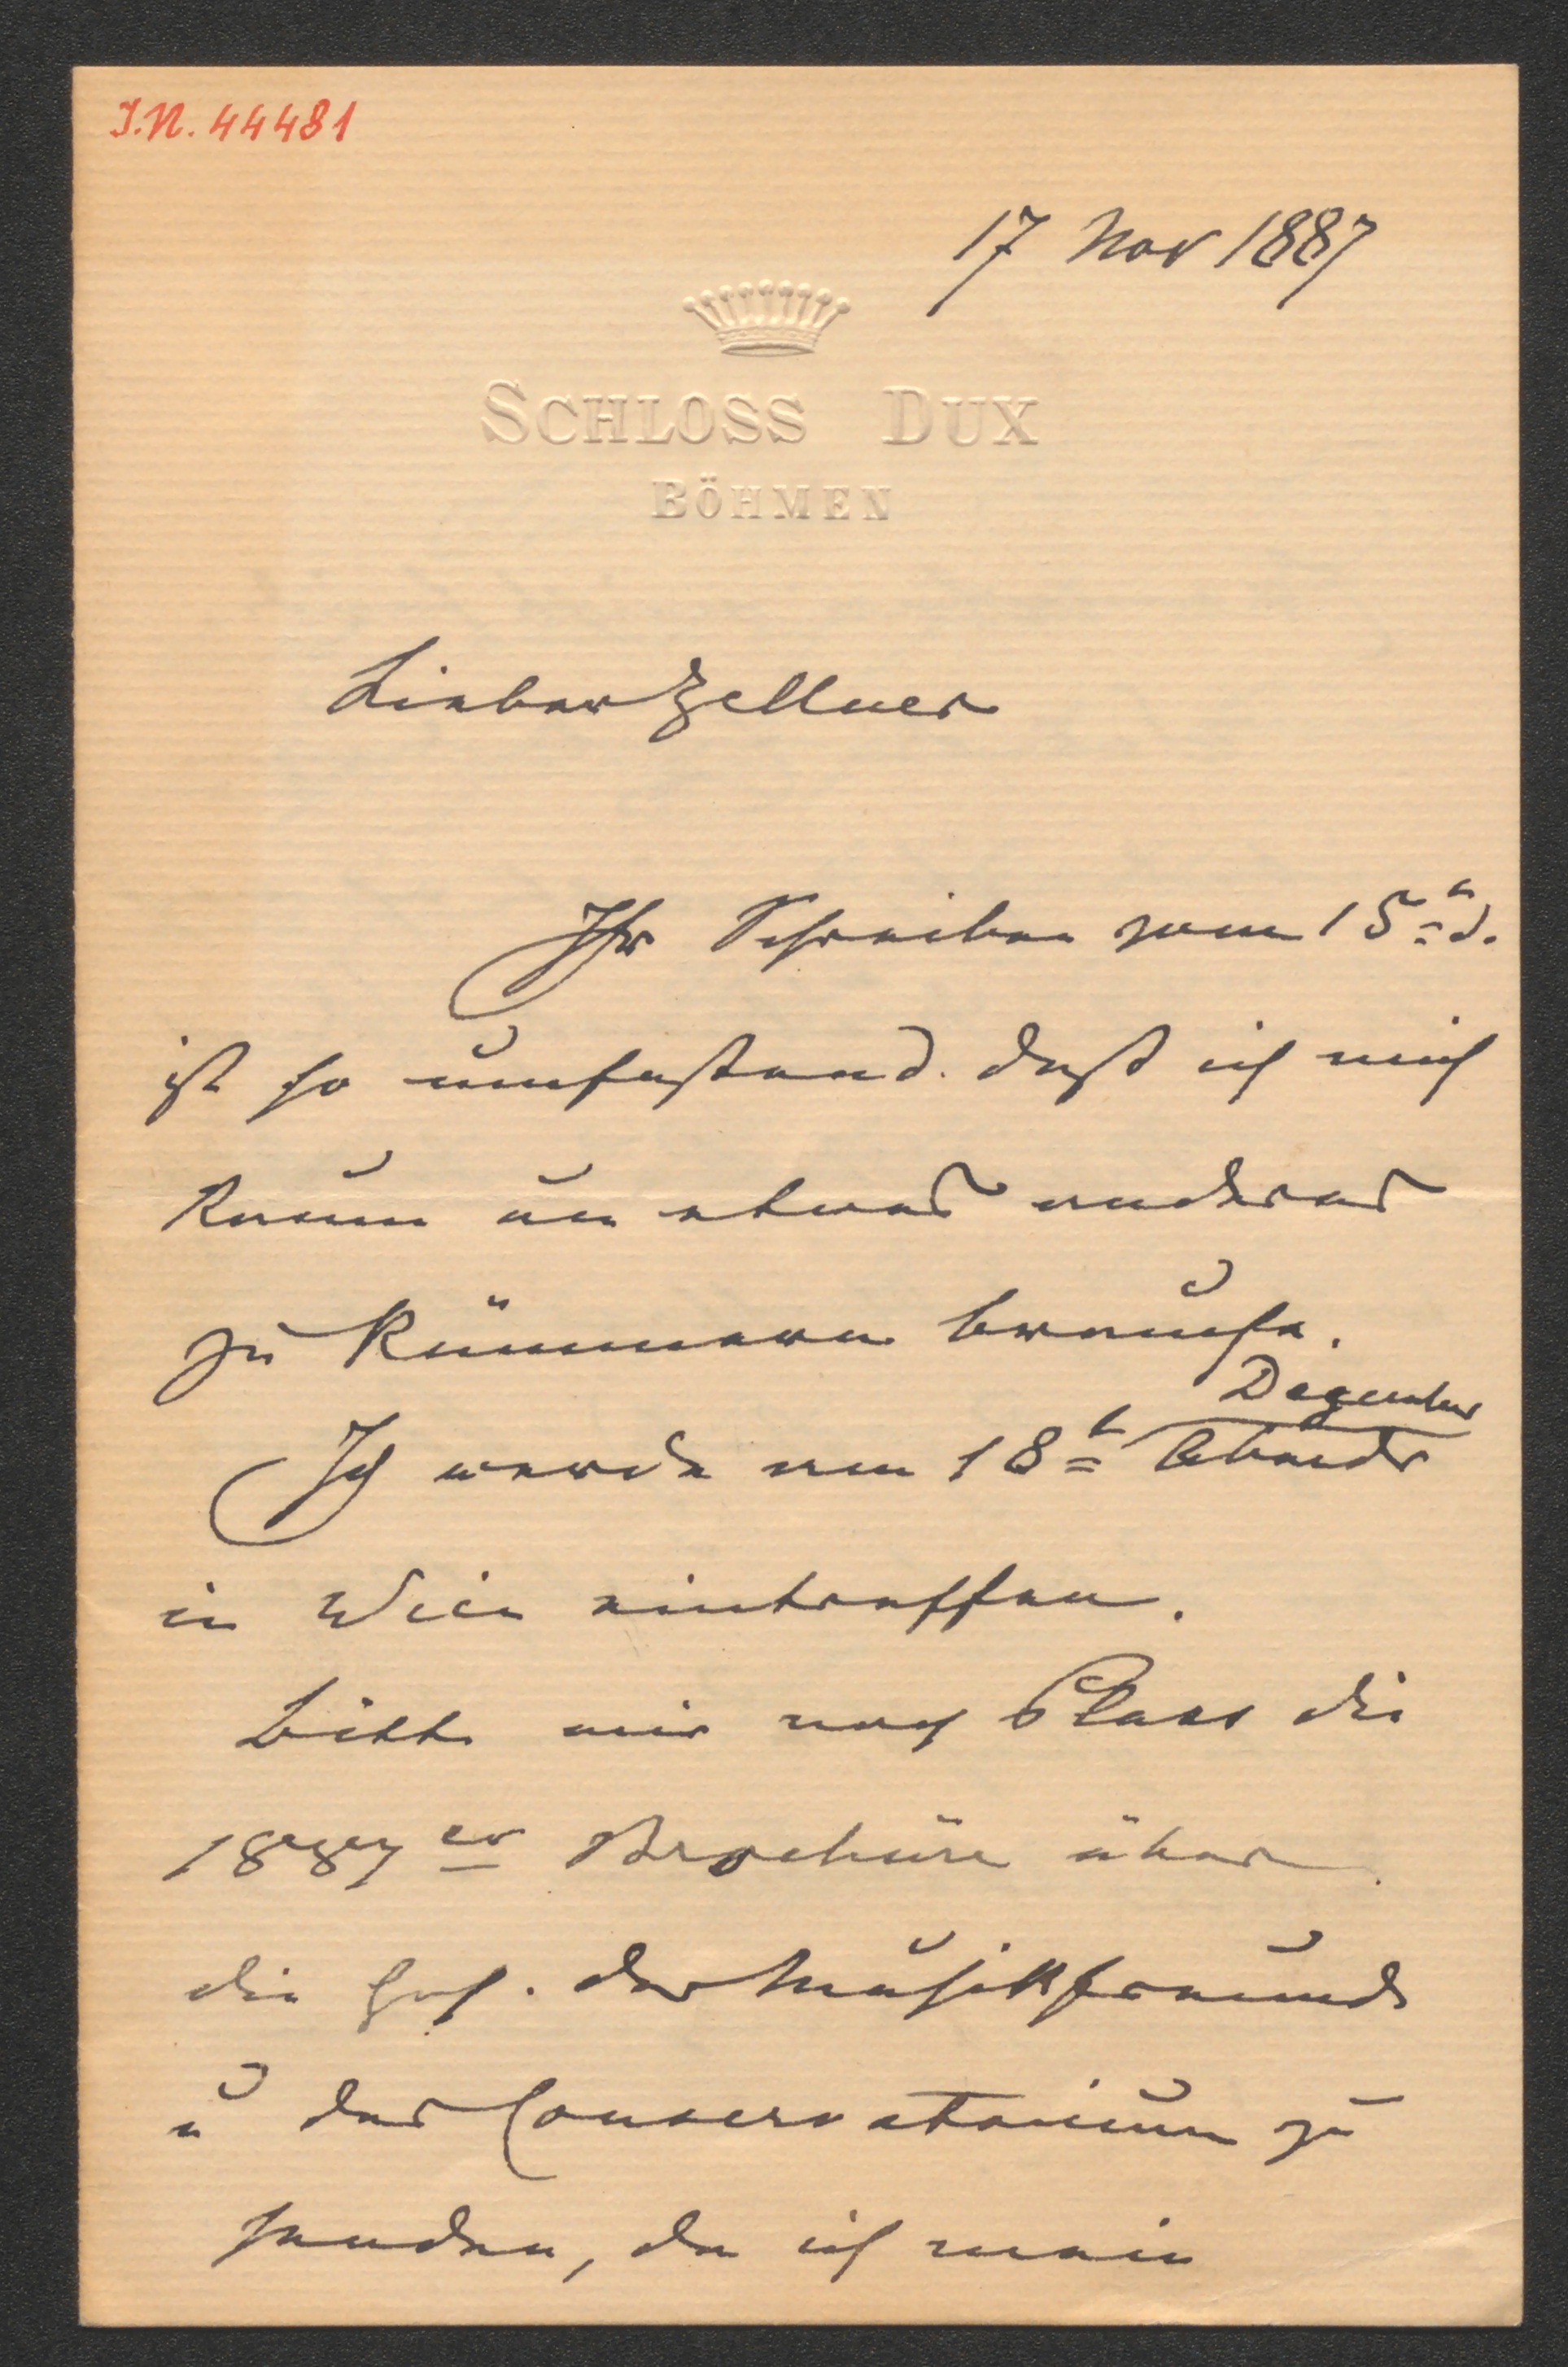 I.N. 44481
17 Nov 1887
SCHLOSS DUX
BÖHMEN
Lieber Zellner
Ihr Schreiben vom 15t d.
ist so umfassend. daß ich mich
kaum um etwas anderes
zu kümmern brauche.
Dezember
Ich werde am 18t Abends
in Wien eintreffen.
Bitte mir nach Plass die
1887er Brochüre über
die Ges. der Musikfreunde
u das Conservatorium zu
senden, da ich mein